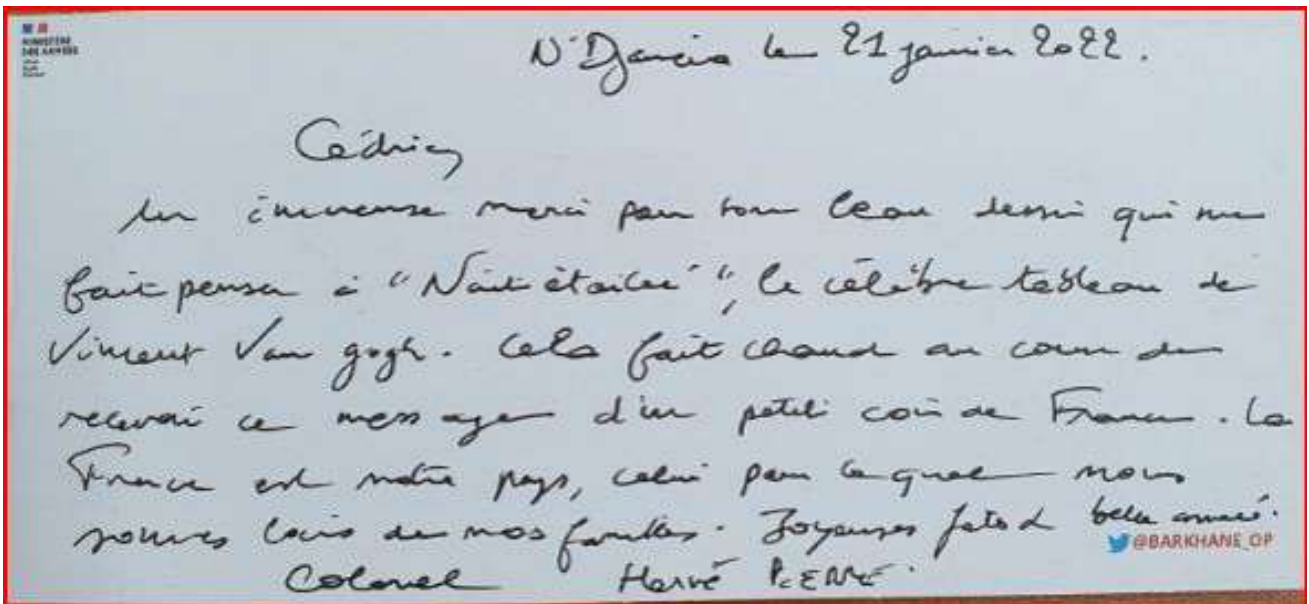 MINISTÈRE
DES ARMÉES
N'Djamena le 21 janvier 2022.
Cédric,
Un immense merci pour ton beau dessin qui me
fait penser à "Nuit étoilée", le célèbre tableau de
Vincent Van gogh. Cela fait chaud au coeur de
recevoir ce message d'un petit coin de France. La
France est notre pays, celui pour lequel nous
sommes loin de nos familles. Joyeuses fêtes & belle année.
@BARKHANE_OP
Colonel Hervé PIERRE.